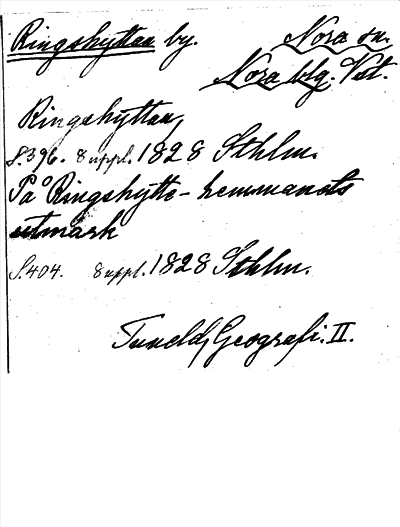 Ringshyttan by. Nora sn.
Nora blg. Vstm.
Ringshyttan,
S.396. 8 uppl. 1828 Sthlm.
På Ringshytte-hemmanets
utmark
S.404. 8 uppl. 1828 Sthlm.
Tuneld, Geografi. II.